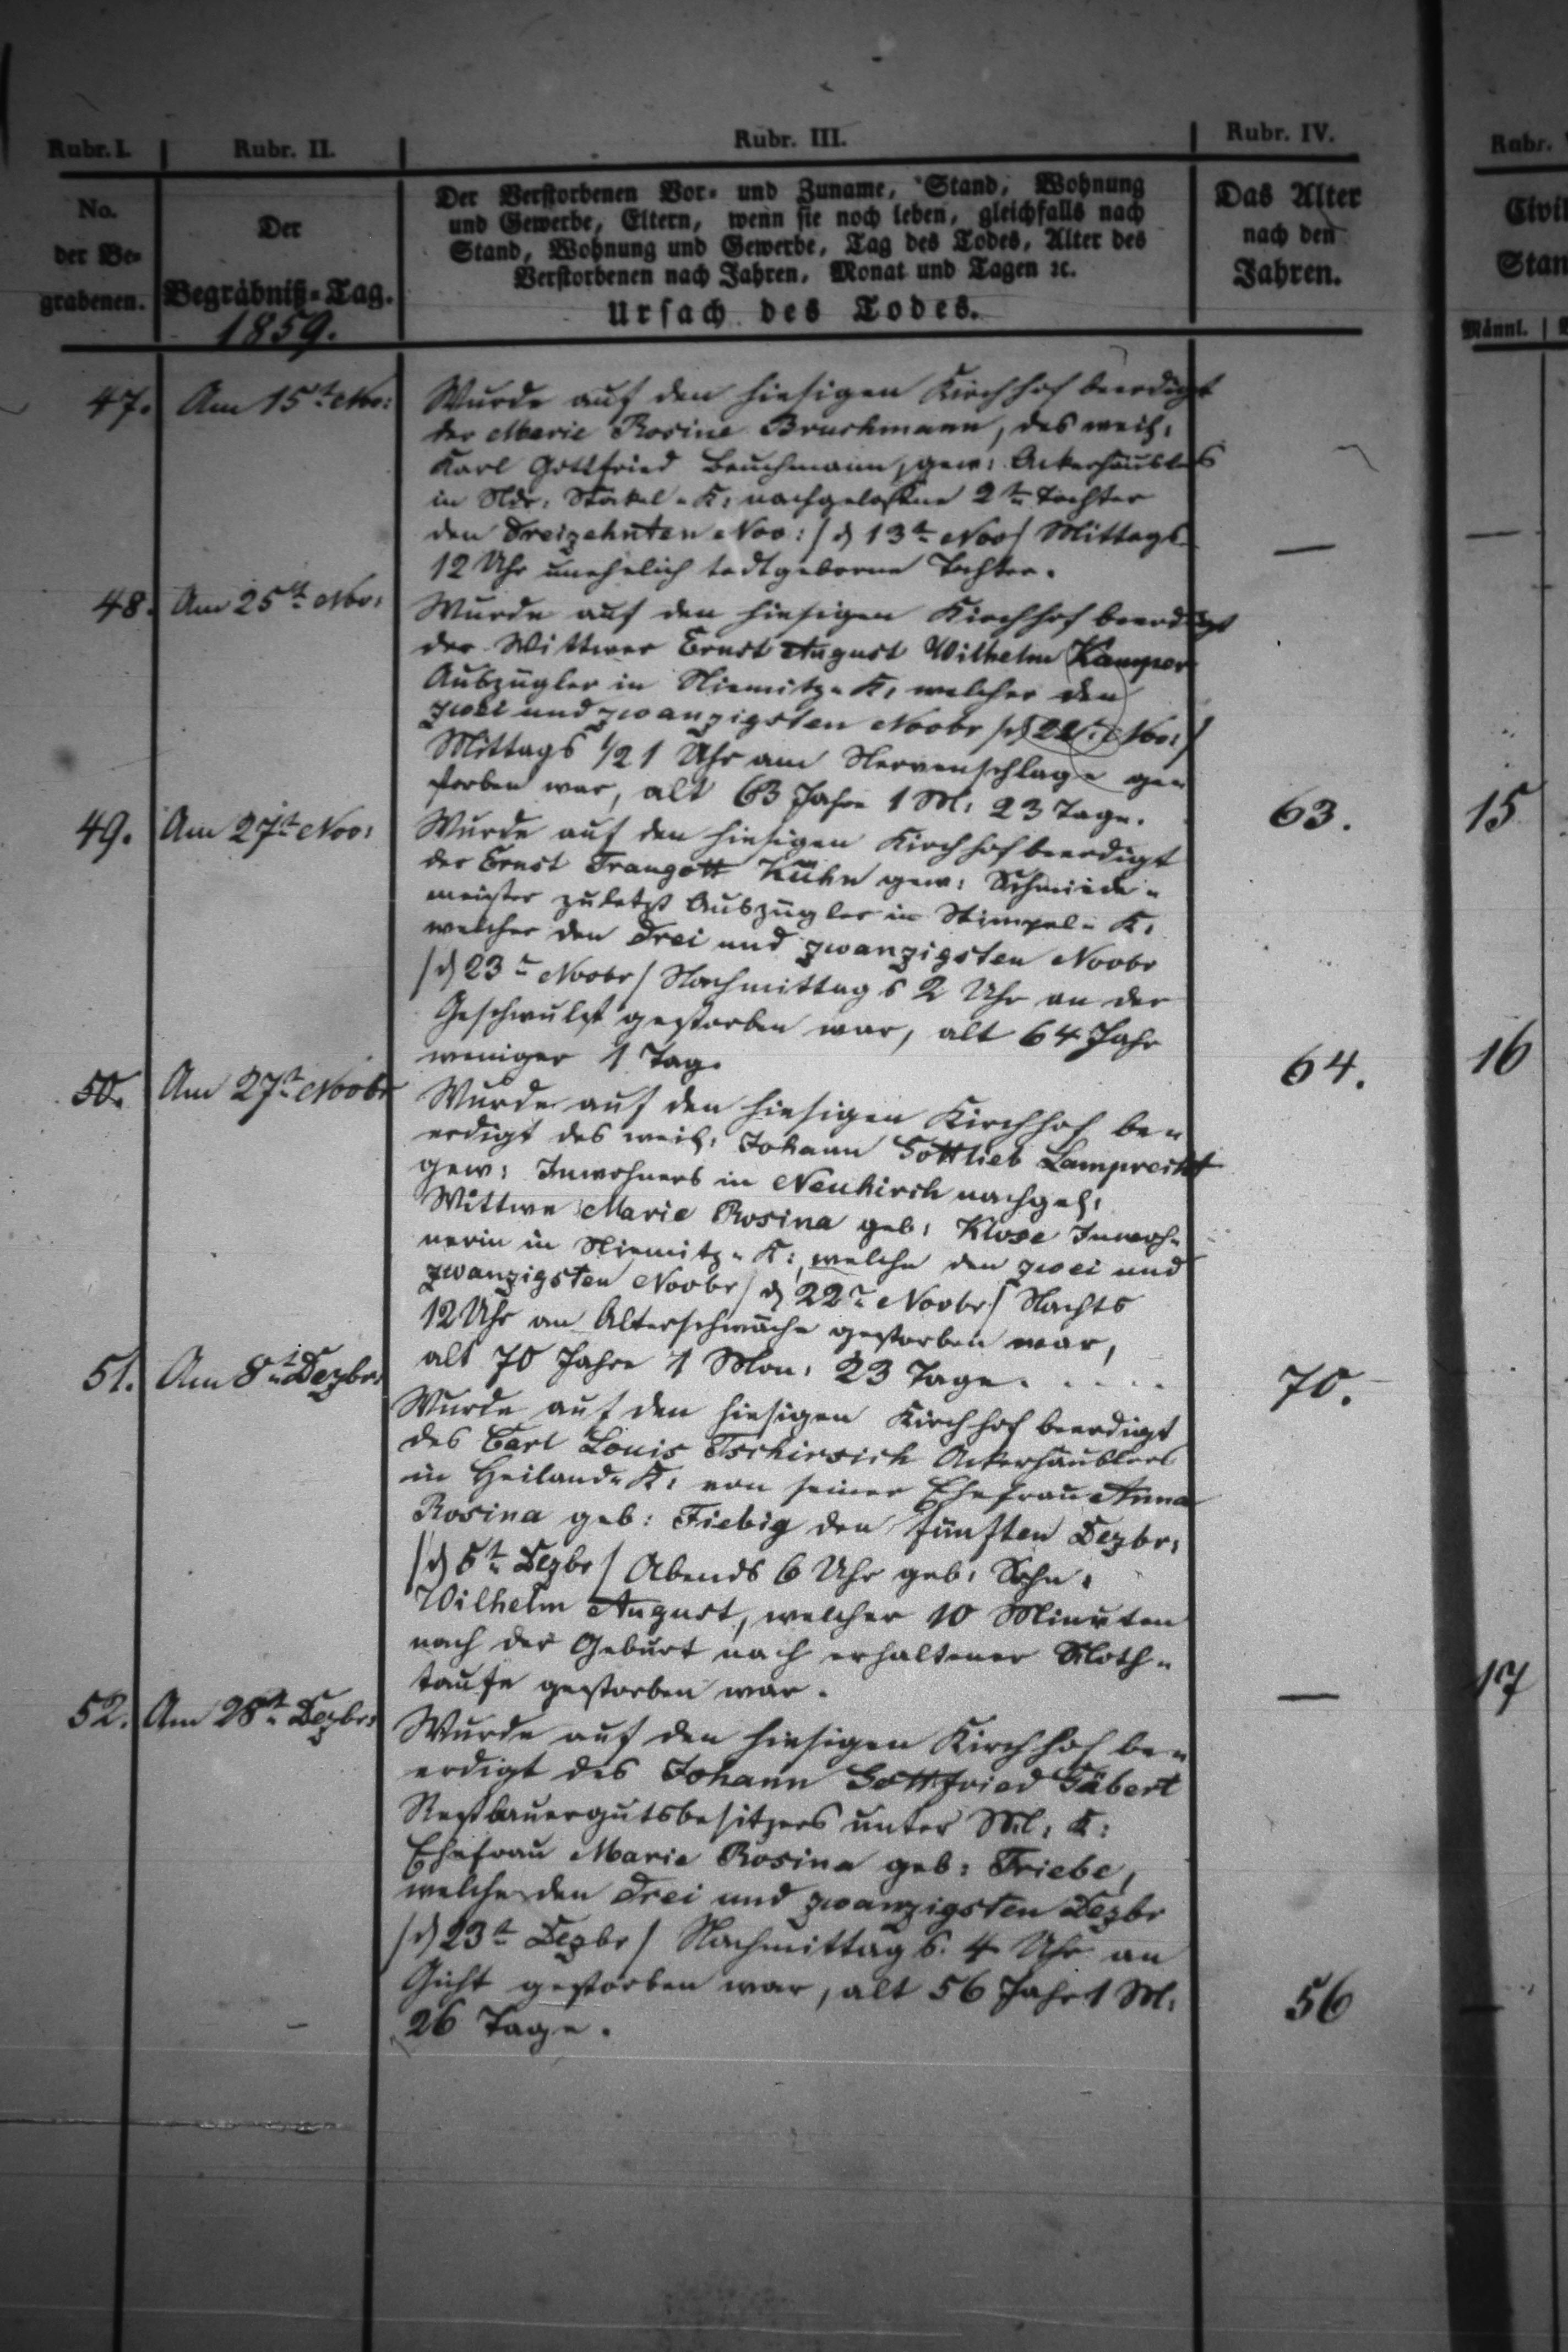 Rubr. I.
Rubr. II.
Rubr. III.
Rubr. IV.
Rubr.
No.
der Be-
grabenen.
Der
Begräbniß-Tag.
1859.
Der Verstorbenen Vor- und Zuname, Stand, Wohnung
und Gewerbe, Eltern, wenn sie noch leben, gleichfalls nach
Stand, Wohnung und Gewerbe, Tag des Todes, Alter des
Verstorbenen nach Jahren, Monat und Tagen ꝛc.
Ursach des Todes.
Das Alter
nach den
Jahren.
Civil
Stan
Männl.
47. Am 15t Nov:
Wurde auf den hiesigen Kirchhof beerdigt
der Marie Rosine Bruchmann, des weil:
Karl Gottfried Bruchmann, gew: Ackerhäuslers
in Ndr: K: nachgelassene 2te Tochter
den Dreizehnten Nov: / d 13t Nov / Mittags
12 Uhr unehelich todtgeborne Tochter.
—
48. Am 25t Nov:
Wurde auf den hiesigen Kirchhof beerdigt
der Wittwer Ernst August Wilhelm Kamper
Auszügler in Niemitz-K: welcher den
zwei und zwanzigsten Novbr / d 22t Nov: /
Mittags 1/2 1 Uhr am Nervenschlage ge-
storben war, alt 63 Jahre 1 M: 23 Tage.
63.
15
49. Am 27t Nov:
Wurde auf den hiesigen Kirchhof beerdigt
der Ernst Traugott Kühn gew: Schmiede-
meister zuletzt Auszügler in Stimpel-K:
welcher den Drei und zwanzigsten Novbr
/ d 23t Novbr / Nachmittags 2 Uhr an der
Geschwulst gestorben war, alt 64 Jahr
weniger 1 Tag.
64.
16
50. Am 27t Novbr
Wurde auf den hiesigen Kirchhof be-
erdigt des weil: Johann Gottlieb Lamprecht
gew: Inwohners in Neukirch nachgel:
Wittwe Marie Rosina geb: Klose Inwoh-
nerin in Niemitz-K:, welche den zwei und
zwanzigsten Novbr / d 22t Novbr / Nachts
12 Uhr an Alterschwäche gestorben war,
alt 70 Jahre 1 Mon: 23 Tage. . . . .
70.
51. Am 8t Dezbr:
Wurde auf den hiesigen Kirchhof beerdigt
des Carl Louis Tschirsich Ackerhäuslers
in Heiland-K: von seiner Ehefrau Anna
Rosina geb: Fiebig den fünften Dezbr:
/ d 5t Dezbr / Abends 6 Uhr geb: Sohn,
Wilhelm August, welcher 10 Minuten
nach der Geburt nach erhaltener Noth-
taufe gestorben war.
—
17
52. Am 28t Dezbr:
Wurde auf den hiesigen Kirchhof be-
erdigt des Johann Gottfried Gäbert
Restbauergutsbesitzers unter Ml: K:
Ehefrau Marie Rosina geb: Triebe,
welche den Drei und zwanzigsten Dezbr
/ d 23t Dezbr / Nachmittags 4 Uhr an
Gicht gestorben war, alt 56 Jahr 1 M:
26 Tage.
56